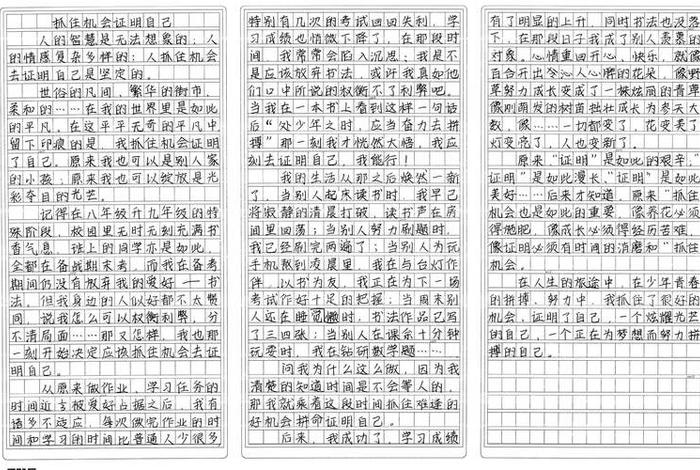 抓住机会证明自己
人的智慧是无法想象的；人
的情感复杂多样的；人抓住机会
去证明自己是坚定的。
世俗的凡间，繁华的街市，
柔和的……在我的世界里是如此
的平凡。在这平平无奇的平凡中
留下印痕的是，我抓住机会证明
了自己。原来我也可以是别人家
的小孩；原来我也可以绽放是光
彩夺目的光芒。
记得在八年级升九年级的特
殊阶段，校园里无时无刻充满书
香气息，班上的同学亦是如此，
全都在备战期末考，而我在备考
期间仍没有放弃我的爱好——书
法，但我身边的人似乎都不太赞
同，说我怎么可以权衡利弊，分
不清局面……那又怎样，我也那
一刻开始决定应该抓住机会去证
明自己。
从原来做作业，学习任务的
时间近乎被爱好占据之后，我有
诸多不适应，每次做完作业的时
间和学习的时间比普通人少很多
特别有几次的考试回回失利，学
习成绩也稍微下降了，在那段时
间，我常常会陷入沉思：我是不
是应该放弃书法，或许我真如他
们口中所说的权衡不了利弊吧。
当我在一本书上看到这样一句话
后“处少年之时，应当奋力去拼
搏”那一刻我才恍然大悟，我应
刻去证明自己，我能行！
我的生活从那之后焕然一新
了，当别人起床读书时，我早已
将寂静的清晨打破，读书声在房
间里回荡；当别人努力刷题时，
我已经刷完两遍了；当别人为玩
手机熬到凌晨里，我在与台灯作
伴，以书为友，我正在为下一场
考试作好十足的把握；当周末别
人还在睡觉懒时，书法作品已写
了三四张；当别人在课余十分钟
玩耍时，我在钻研数学题……
问我为什么这么做，因为我
清楚的知道时间是不会等人的，
那我就乘着这段时间抓住难逢的
好机会拼命证明自己。
后来，我成功了，学习成绩
有了明显的上升，同时书法也没落
下，在那段日子我成了别人羡慕的
对象。心情重回开心、快乐，就像
百合开出令人心脾的花朵，像野
草努力成长变成了一株炫丽的青草
像刚萌发的树苗茁壮成长为参天大
数，像……一切都变了，花变美了
灯变亮了，人也变新了。
原来“证明”是如此的艰辛；“证
明”是如此漫长，“证明”是如此
美好……后来才知道，原来“抓住
机会也是如此的重要，像养花必须
得施肥，像成长必须得经历苦难，
像证明必须有时间的消磨和“抓住
机会。
在人生的旅途中，在少年青春
的拼搏、努力中，我抓住了很好的
机会，证明了自己，一个炫耀光芒
的自己，一个正在为梦想而努力拼
搏的自己。